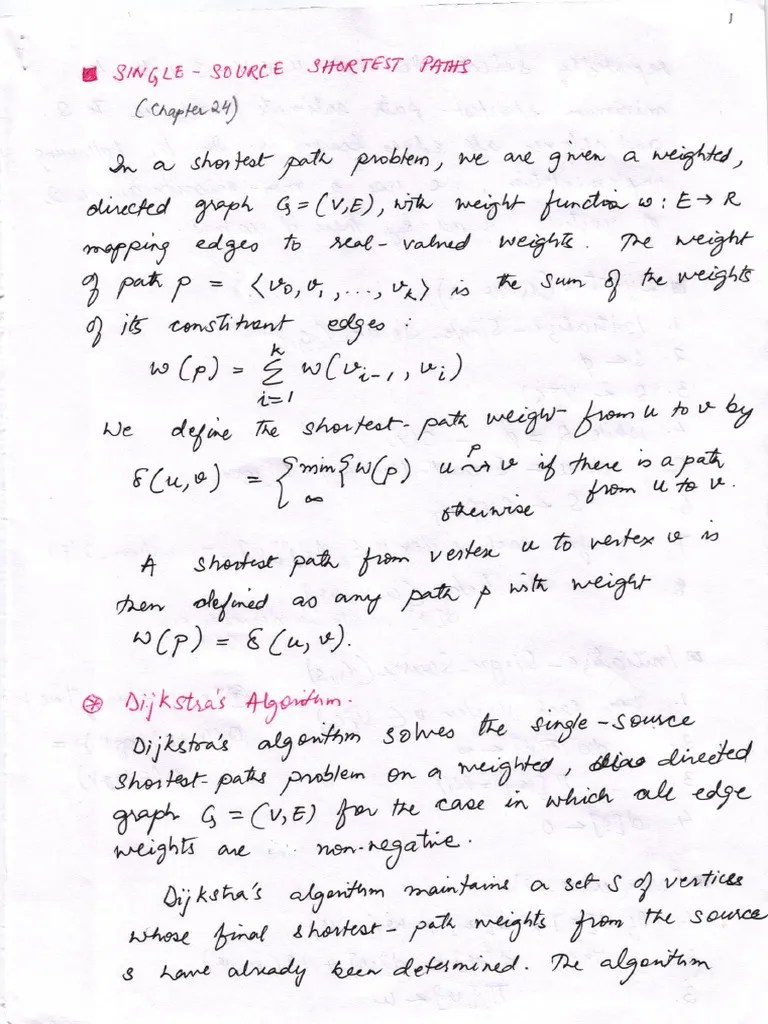 1
SINGLE-SOURCE SHORTEST PATHS
(Chapter 24)
In a shortest path problem, we are given a weighted,
directed graph G=(V,E), with weight function w: E→R
mapping edges to real-valued weights. The weight
of path p = <v0, v1, ..., vk> is the sum of the weights
of its constituent edges:
w(p) = Σ_{i=1}^{k} w(v_{i-1}, v_i)
We define the shortest-path weight from u to v by
δ(u,v) = { min{w(p) u ~p~> v if there is a path
from u to v.
∞ otherwise
A shortest path from vertex u to vertex v is
then defined as any path p with weight
w(p) = δ(u,v).
Dijkstra's Algorithm.
Dijkstra's algorithm solves the single-source
shortest-paths problem on a weighted, directed
graph G=(V,E) for the case in which all edge
weights are non-negative.
Dijkstra's algorithm maintains a set S of vertices
whose final shortest-path weights from the source
s have already been determined. The algorithm